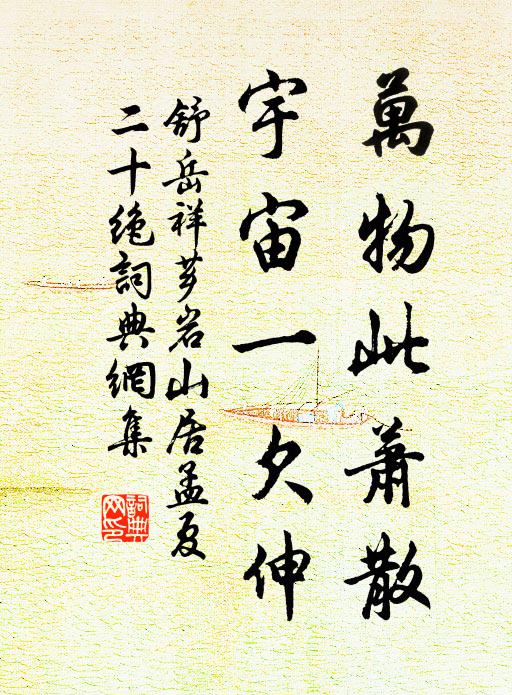 萬物此蕭散
宇宙一欠伸
舒岳祥夢岩山居孟夏
二十絶詞典網集
詞典
网印